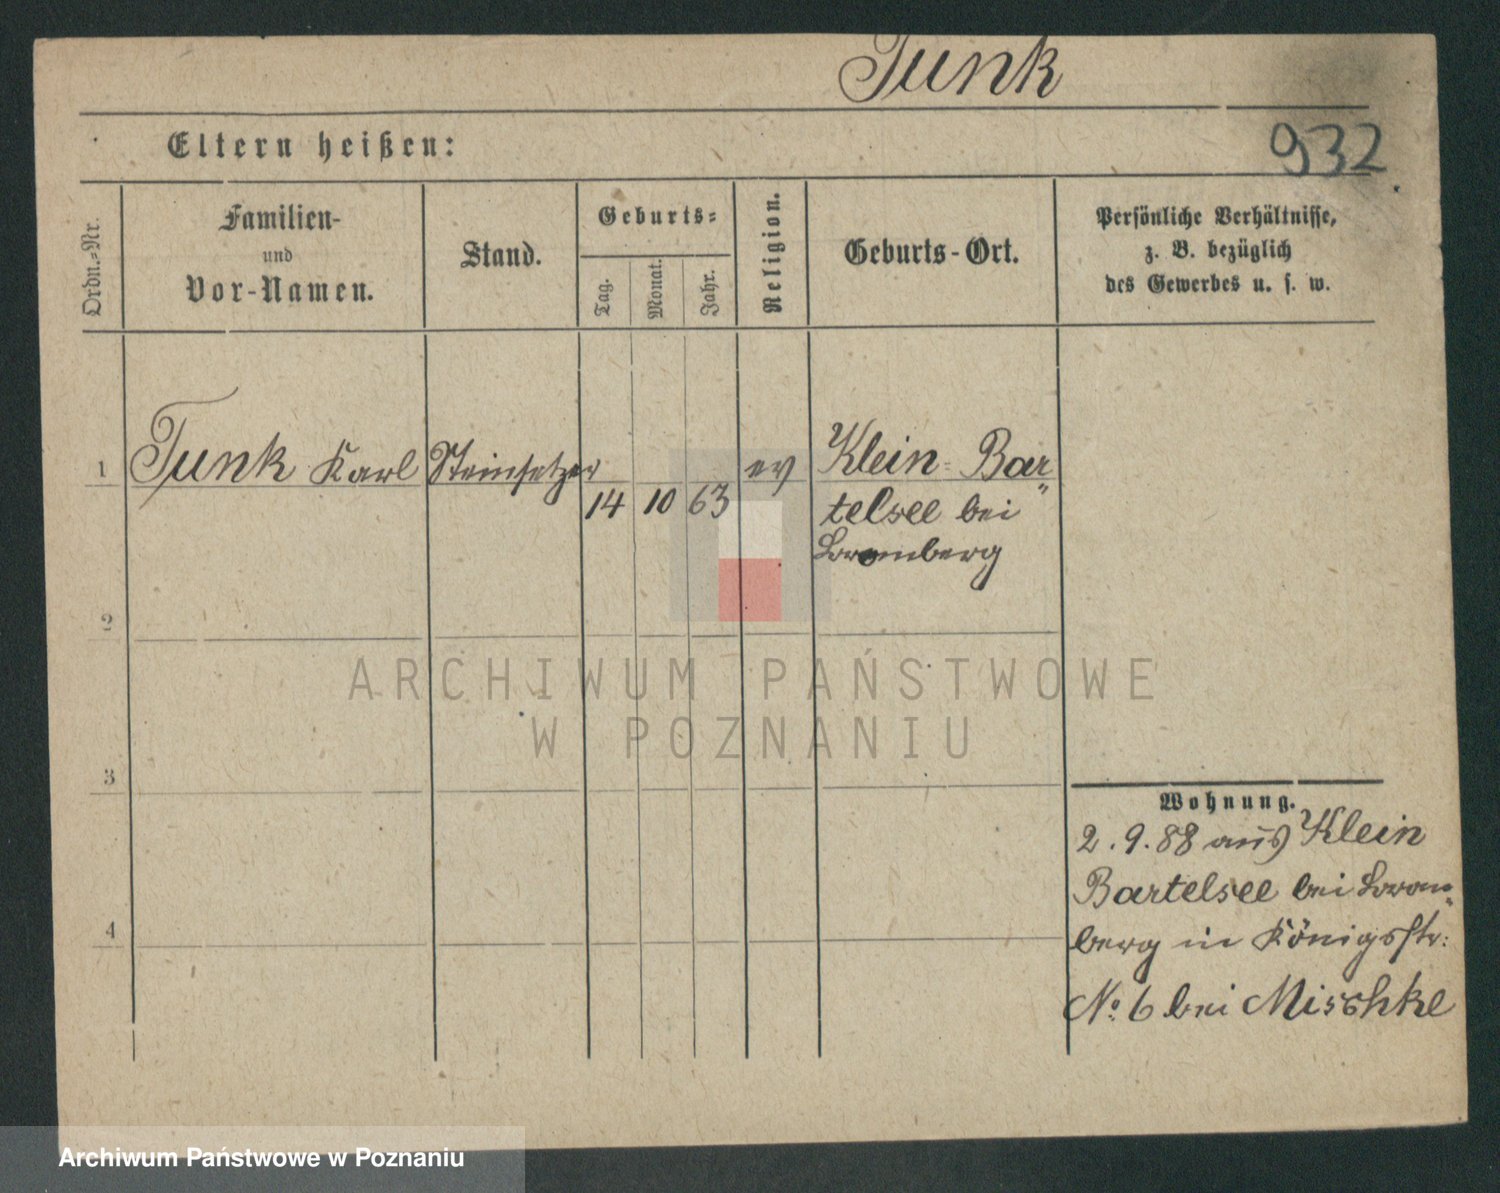 Tunk
932
Eltern heißen:
Ordn.-Nr.
Familien-
und
Vor-Namen.
Stand.
Geburts-
Tag.
Monat.
Jahr.
Religion.
Geburts-Ort.
Persönliche Verhältnisse,
z. B. bezüglich
des Gewerbes u. s. w.
1 Tunk Karl Steinsetzer 14 10 63 ev Klein-Bar-
telsee bei
Bromberg
2
3
4
Wohnung.
2.9.88 aus Klein
Bartelsee bei Brom-
berg in Königsstr:
No 6 bei Mischke
ARCHIWUM PAŃSTWOWE
W POZNANIU
Archiwum Państwowe w Poznaniu